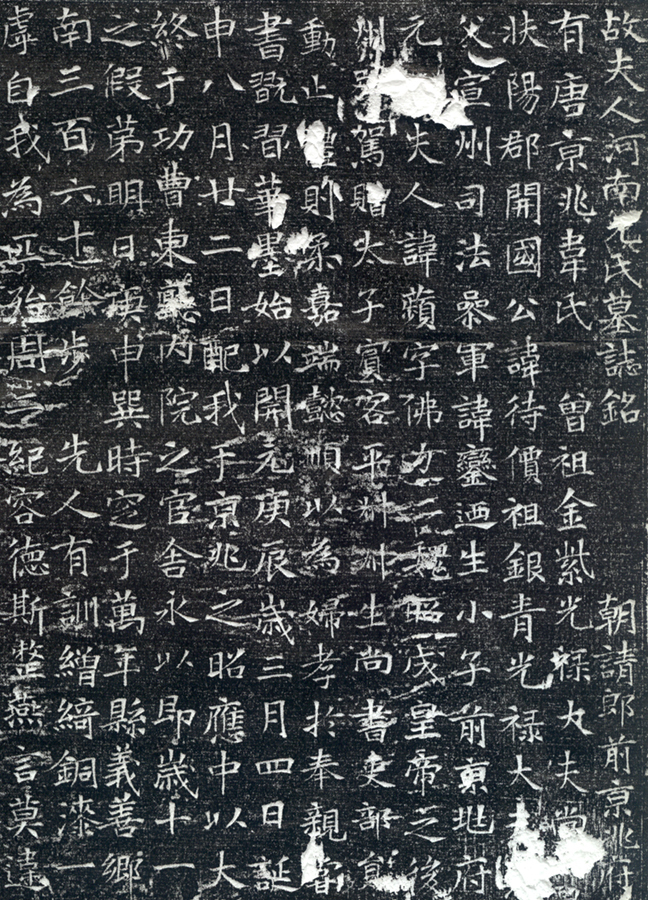 故夫人河南元氏墓誌銘 朝請郎前京兆府
有唐京兆韋氏 曾祖金紫光祿大夫尚
扶陽郡開國公諱待價祖銀青光祿大
父宣州司法叅軍諱鑾迺生小子前京兆府
元 夫人諱蘋字佛力二魏昭成皇帝之後
州別駕贈太子賓客平叔叔生尚書吏部員
動止禮則柔嘉端懿順以為婦孝於奉親嘗
書翫習華墨始以開元庚辰歲三月四日誕
申八月廿二日配我于京兆之昭應中以大
終于功曹東廳內院之官舍永以即歲十一
之假第明日庚申巽時窆于萬年縣義善鄉
南三百六十餘步 先人有訓繒綺銅漆一
虖自我為匹殆周二紀容德斯整燕言莫違